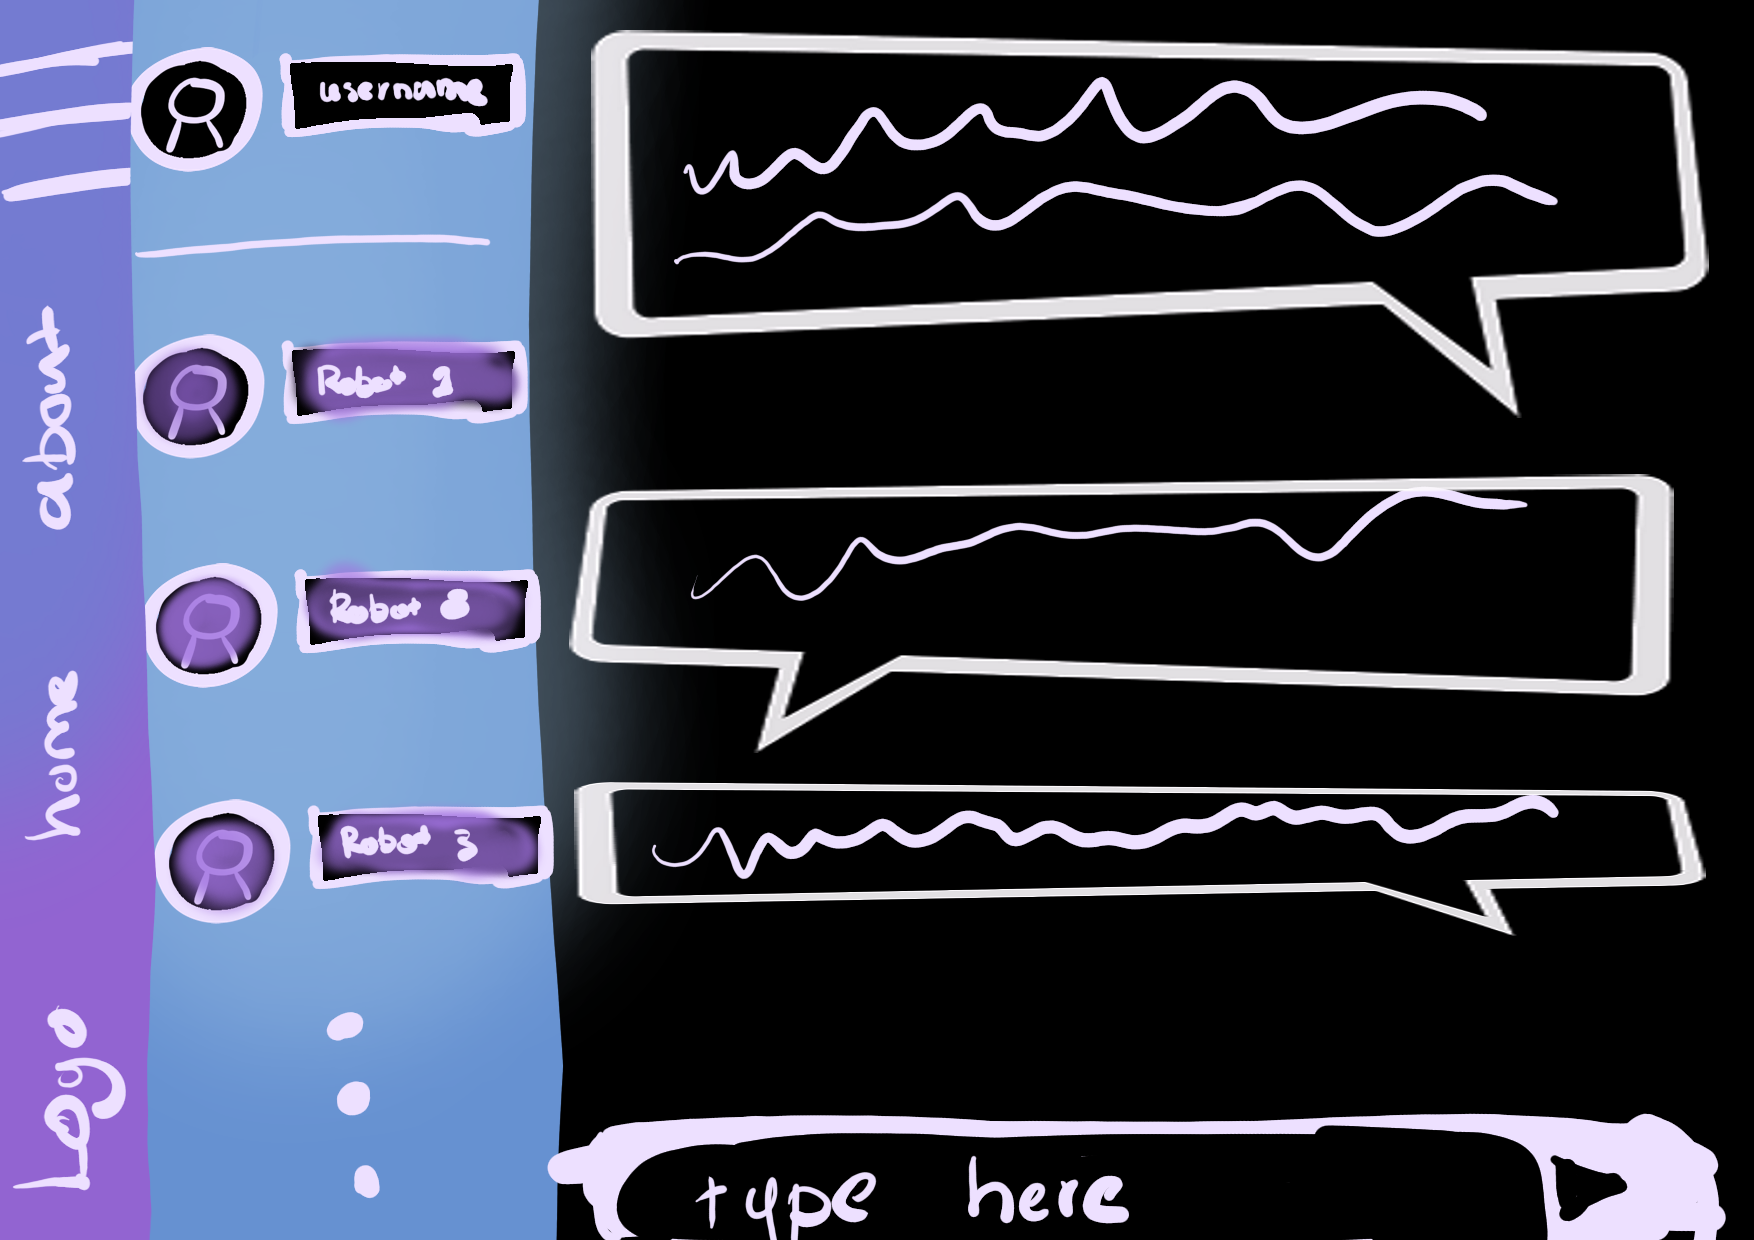 Logo
home
about
username
Robot 1
Robot 2
Robot 3
type here